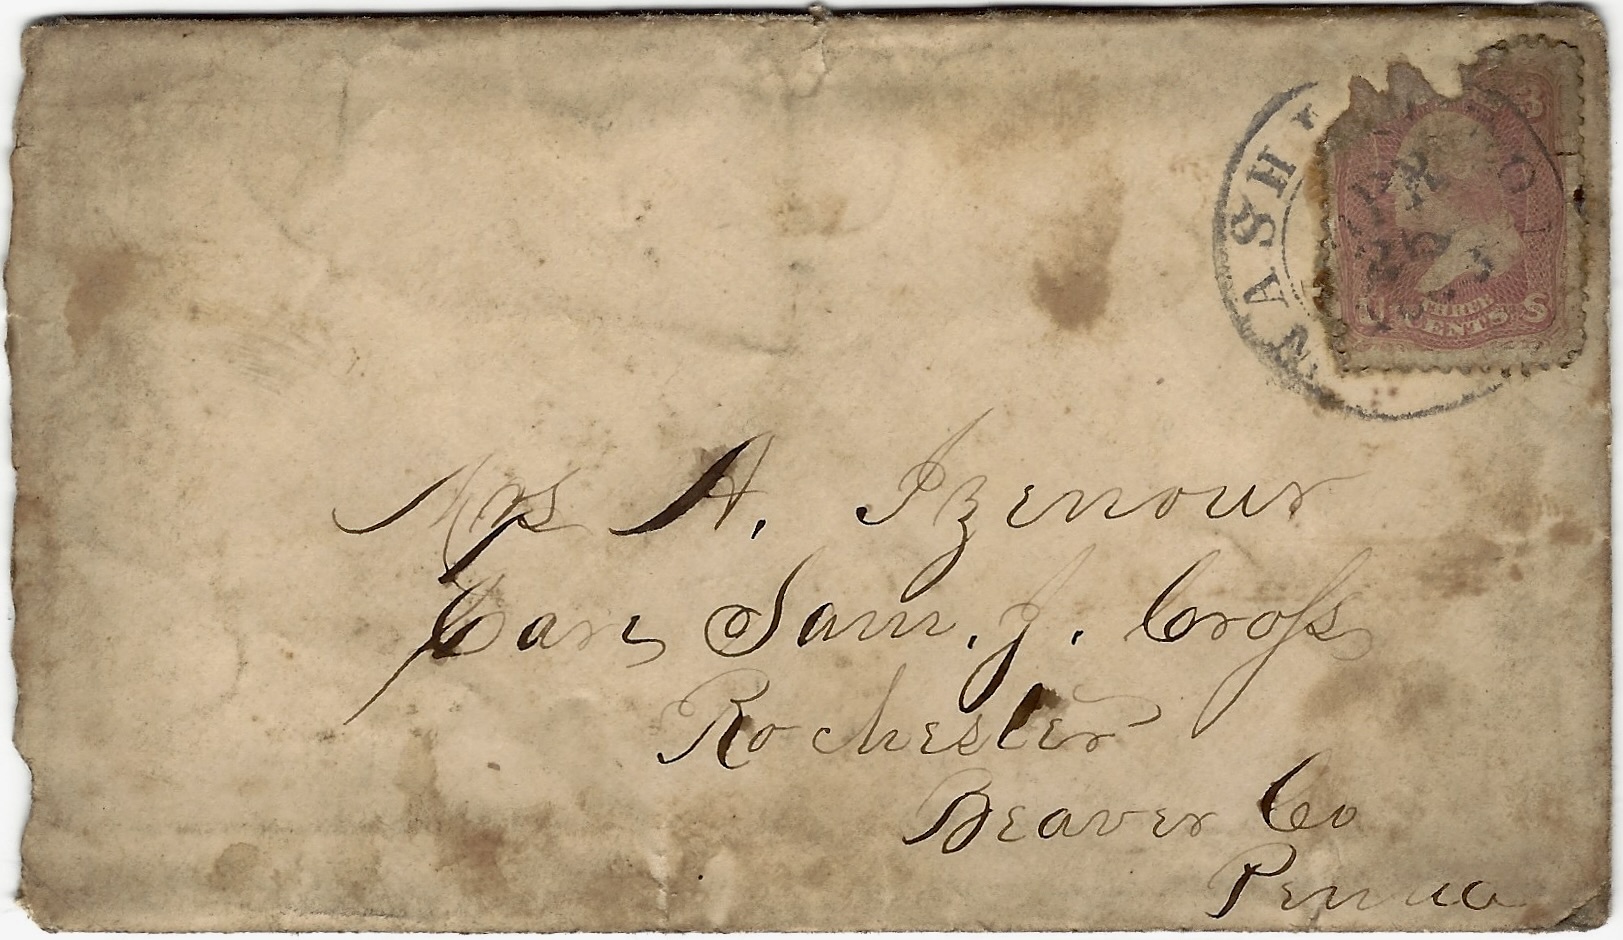 WASHI
3
MAR
25
THREE
CENTS
Mrs A. Izenour
Care Sam. J. Croſs
Rochester
Beaver Co
Penna